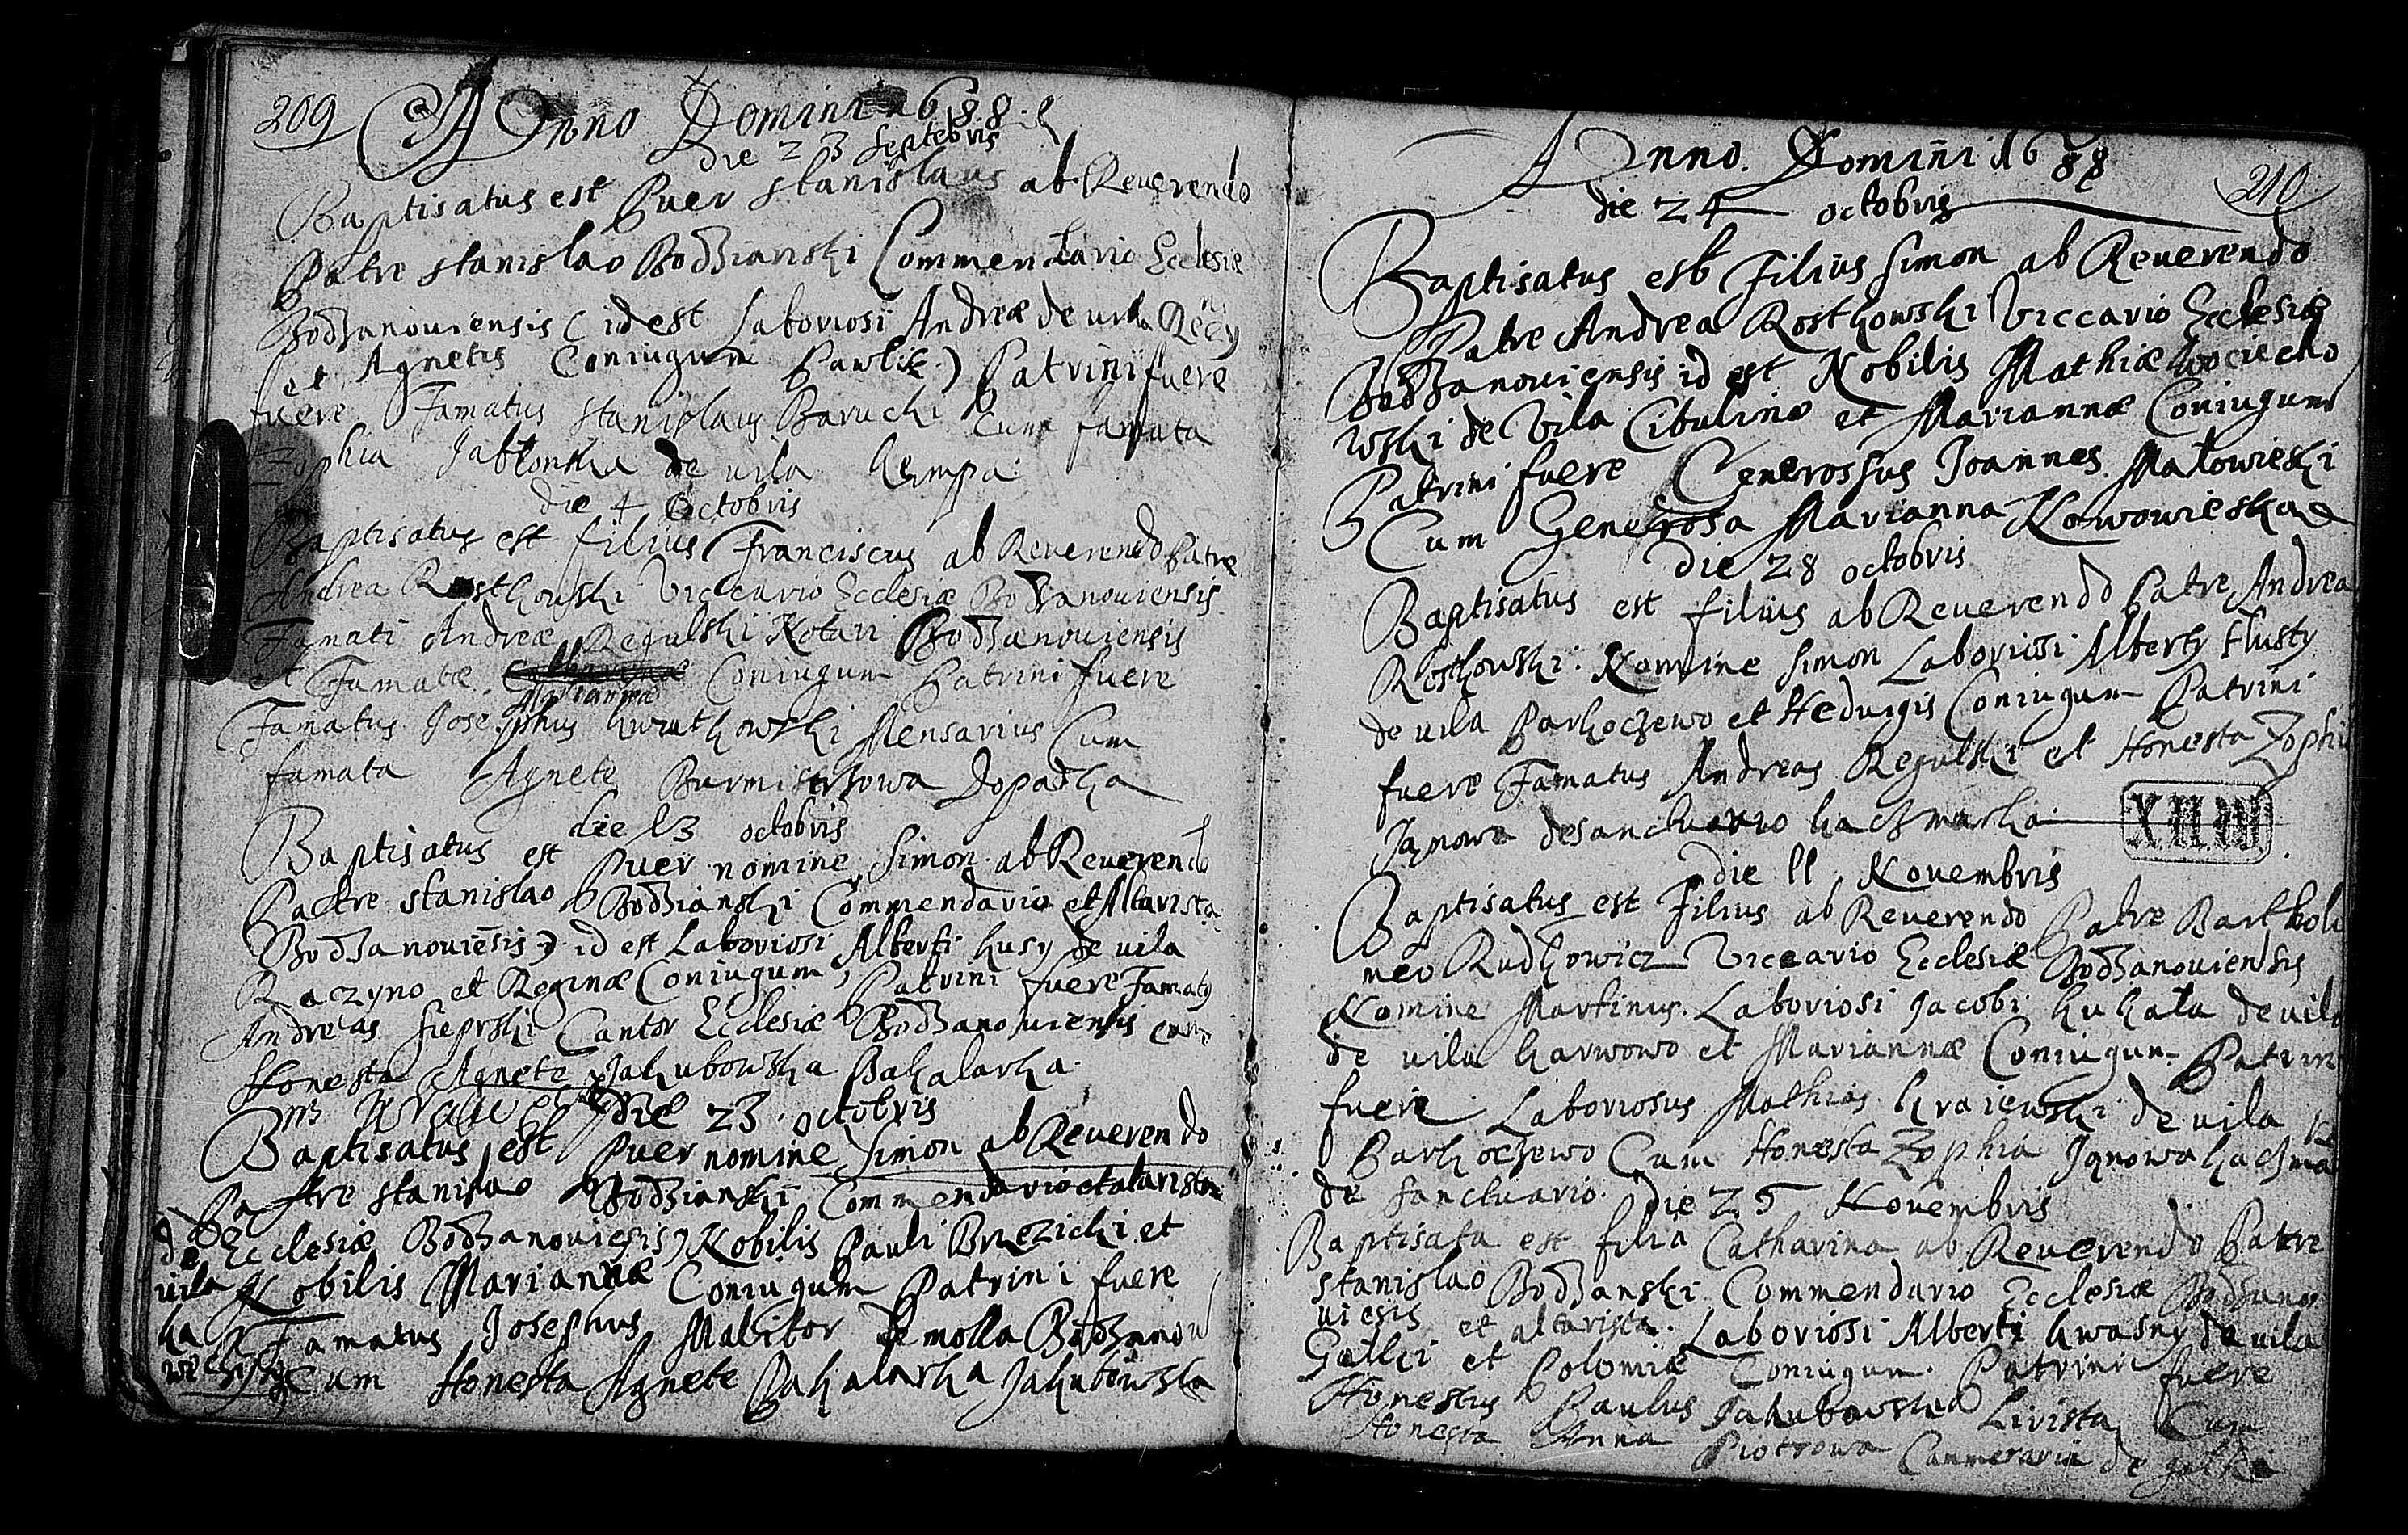 209 Anno Domini 1688
die 23 Septebris
Baptisatus est Puer Stanislaus ab Reuerendo
Patre Stanislao Bodzianski Commendario Ecclesiæ
Bodzanouiensis (id est Laboriosi Andreæ de uila
et Agnetis Coniugum Pawlik) Patrini fuere
fuere Famatus Stanislaus Baruchi Cum famata
Zophia Jabłonska de uila kempa
die 4 Octobris
Baptisatus est filius Franciscus ab Reuerendo Patre
Andrea Rostkouski Viccario Ecclesiæ Bodzanouiensis
Famati Andreæ Regulski Notari Bodzanouiensis
et Famatæ Mariannæ Coniugum Patrini fuere
Famatus Josephus Mensarius Cum
famata Agnete Burmistrzowa Dopadka
die 13 octobris
Baptisatus est Puer nomine Simon ab Reuerendo
Patre Stanislao Bodzianski Commendario et Altarista
Bodzanouiēsis) id est Laboriosi Alberti kusy de uila
Raczyno et Reginæ Coniugum, Patrini fuere Famaty
Andreas Sieprski Cantor Ecclesiæ Bodzanouiensis cum
Honesta Agnete Jakubowska Bakalarka
die 23 octobris
Baptisatus est Puer nomine Simon ab Reuerendo
Patre Stanislao Bodzianski Commendario et altarista
Ecclesiæ Bodzanouiesis) Nobilis Pauli Brzezicki et
de uila Nobilis Mariannæ Coniugum Patrini fuere
Famatus Josephus Malitor de molla Bodzanou
Cum Honesta Agnete Bakalarka Jakubowska
Anno Domini 1688
210
die 24 octobris
Baptisatus est Filius Simon ab Reuerendo
Patre Andrea Rostkowski Viccario Ecclesiæ
Bodzanouiensis id est Nobilis Mathiæ Wociecho
wski de Vila Cibulino et Mariannæ Coniugum
Patrini fuere Generossus Joannes Małowieski
Cum Generosa Marianna Nowowieska
die 28 octobris
Baptisatus est filius ab Reuerendo Patre Andrea
Rostkowski Nomine Simon Laboriosi Alberty tłusty
de uila Parkoczewo et Heduigis Coniugum Patrini
fuere Famatus Andreas Regulski et Honesta Zophia
Janowa de sanctuario kaczmarka
XII.III
die 11 Nouembris
Baptisatus est Filius ab Reuerendo Patre Bartholo
meo Rudkowicz Viccario Ecclesiæ Bodzanouiensis
Nomine Martinus Laboriosi Jacobi kukała de uila
de uila karwowo et Mariannæ Coniugum Patrini
fuere Laboriosus Mathias kraiewski de uila
Parkoczewo Cum Honesta Zophia Janowa kaczma
de sanctuario die 25 Nouembris
Baptisata est filia Catharina ab Reuerendo Patre
Stanislao Bodzanski Commendario Ecclesiæ Bodzano
uiesis et altarista Laboriosi Alberti kwasny de uila
et Polomiæ Coniugum Patrini fuere
Honestus Paulus Jakubowski Lirista Cum
Honesta Anna Piotrowa Cammeraria de